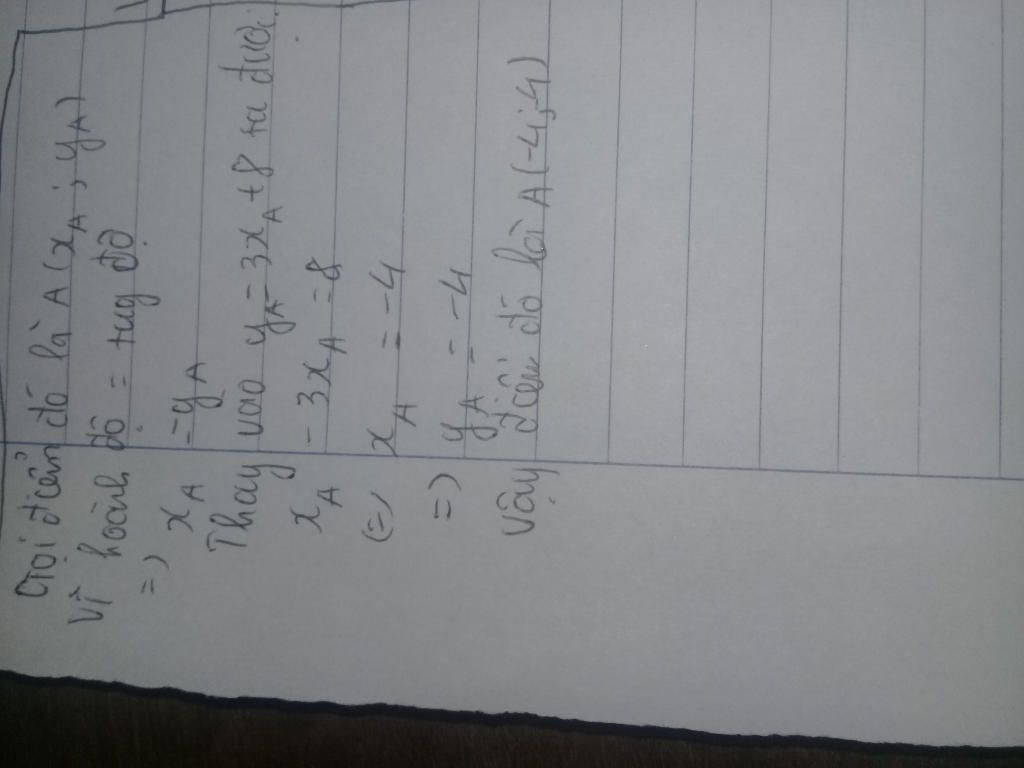 Gọi điểm đó là A(x_A; y_A)
Vì hoành độ = tung độ
=) x_A = y_A
Thay vào y_A = 3x_A + 8 ta được:
x_A - 3x_A = 8
(=) x_A = -4
=) y_A = -4
Vậy điểm đó là A(-4;-4)